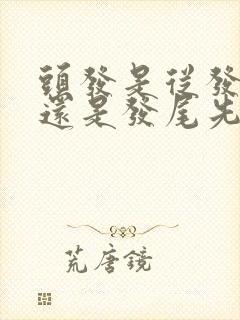 頭發是從發
還是發尾先
荒唐鏡